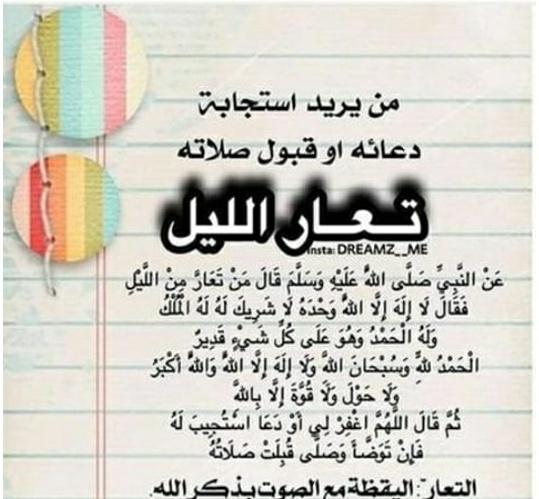 من يريد استجابة
دعائه او قبول صلاته
تعار الليل
insta: DREAMZ__ME
عَنْ النَّبِيِّ صَلَّى اللهُ عَلَيْهِ وَسَلَّمَ قَالَ مَنْ تَعَارَّ مِنْ اللَّيْلِ
فَقَالَ لَا إِلَهَ إِلَّا اللهُ وَحْدَهُ لَا شَرِيكَ لَهُ لَهُ الْمُلْكُ
وَلَهُ الْحَمْدُ وَهُوَ عَلَى كُلِّ شَيْءٍ قَدِيرٌ
الْحَمْدُ لِلَّهِ وَسُبْحَانَ اللهِ وَلَا إِلَهَ إِلَّا اللهُ وَاللهُ أَكْبَرُ
وَلَا حَوْلَ وَلَا قُوَّةَ إِلَّا بِاللهِ
ثُمَّ قَالَ اللَّهُمَّ اغْفِرْ لِي أَوْ دَعَا اسْتُجِيبَ لَهُ
فَإِنْ تَوَضَّأَ وَصَلَّى قُبِلَتْ صَلَاتُهُ
التعار: اليقظة مع الصوت بذكر الله.